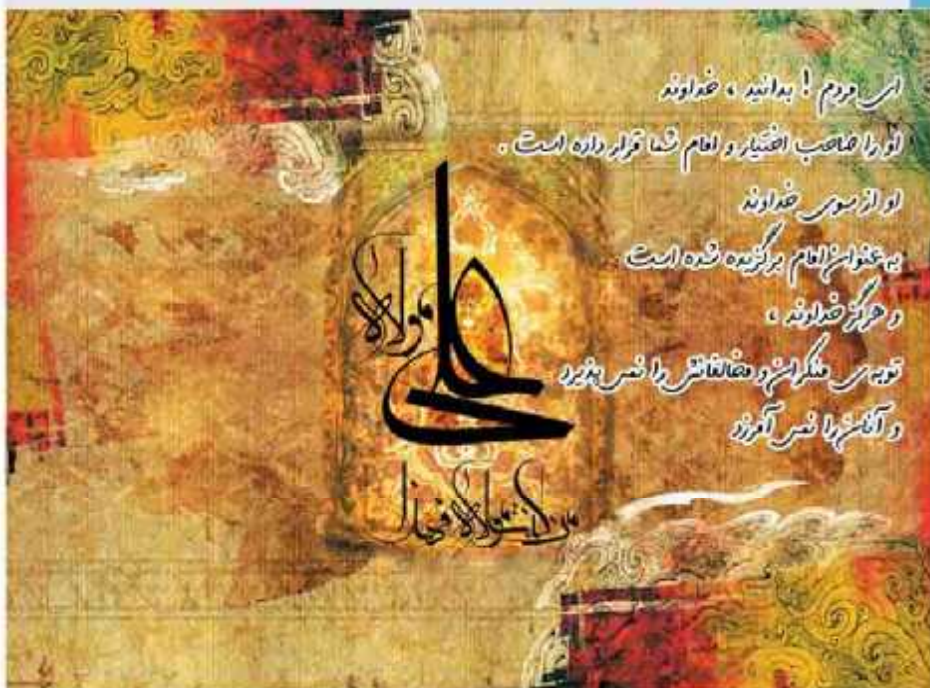 ای مردم ! بدانید ، خداوند
او را صاحب اختیار و امام شما قرار داده است .
او از سوی خداوند
به عنوان امام برگزیده شده است
و هرگز خداوند ،
توبه ی منکران و مخالفانش را نمی پذیرد
و آنان را نمی آمرزد
من کنت مولاه فهذا
علی
مولاه